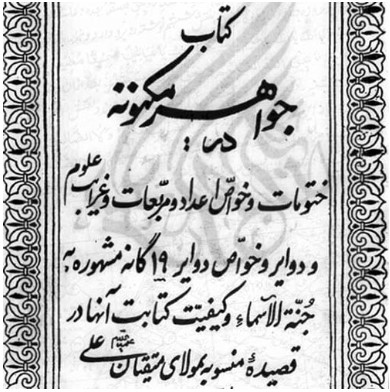 کتاب
جواهر مکنونه
در:
ختومات و خواص اعداد و مربعات و غرایب علوم
و دوایر و خواص دوایر ۱۹ گانه مشهوره به
جُنّة الأسماء و کیفیّت کتابت آنها در
قصیدهٔ منسوبه بمولای متقیان علی